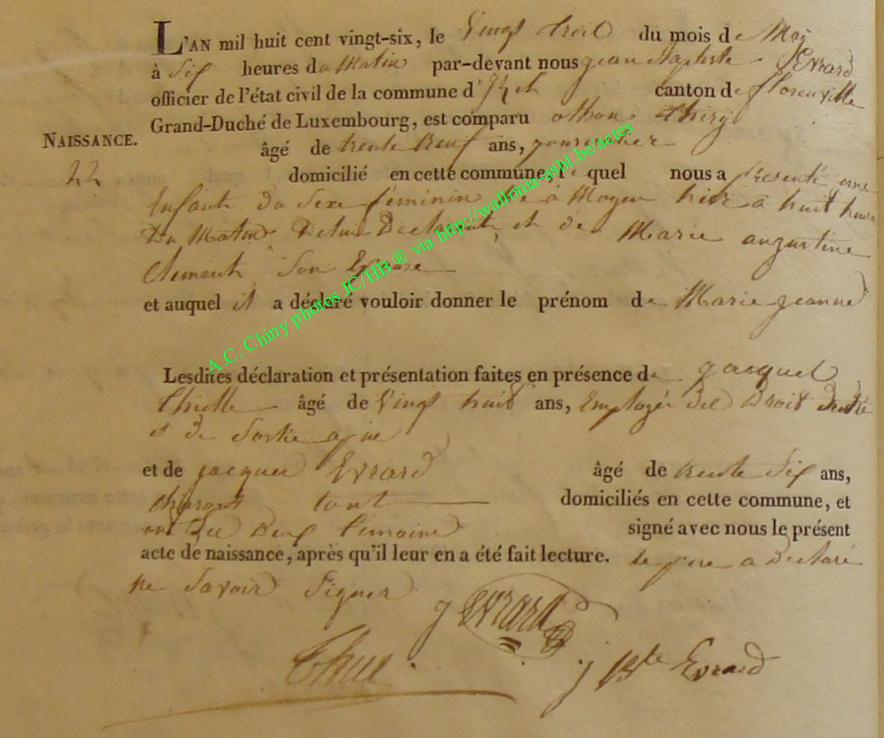 L'AN mil huit cent vingt-six, le Vingt trois du mois de May
à Six heures du Matin par-devant nous jean Baptiste Evrard
officier de l'état civil de la commune d' canton de florenville
Grand-Duché de Luxembourg, est comparu othon thiry
NAISSANCE.
22
âgé de trente neuf ans, journalier
domicilié en cette commune, le quel nous a presenté une
Enfante du Sexe féminin né à Moyen hier à huit heures
Du Matin De lui Declarant, et de Marie augustine
Clement Son Epouse
et auquel il a déclaré vouloir donner le prénom de Marie jeanne
Lesdites déclaration et présentation faites en présence de jacques
âgé de Vingt huit ans, Employé des Droit Dentré
et de Sortie
et de jacques Evrard âgé de trente Six ans,
domiciliés en cette commune, et
ont les Deux témoins signé avec nous le présent
acte de naissance, après qu'il leur en a été fait lecture. le pere a Declaré
ne Savoir Signer
j Evrard
j Bte Evrard
A.C. Chiny photos IC/HB ® via http://wallonia-asbl.be/actes